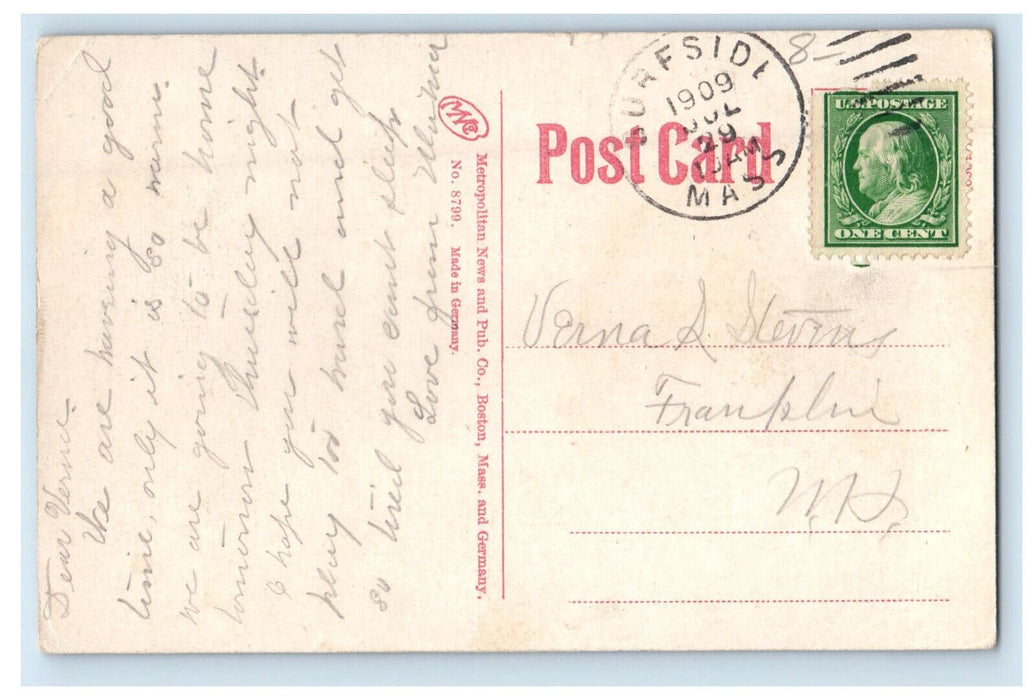 Dear Verna-
We are having a good
time, only it is so warm.
we are going to be home
tomorrow Thursday night
I hope you will not
play too hard and get
so tired you cant sleep
Love from Mama
MNC
Metropolitan News and Pub. Co., Boston, Mass. and Germany.
No. 8799. Made in Germany.
Post Card
SURFSIDE
1909
JUL
29
AM
MASS
8-
U.S. POSTAGE
ONE CENT
Verna S Stevens
Franklin
N.H.